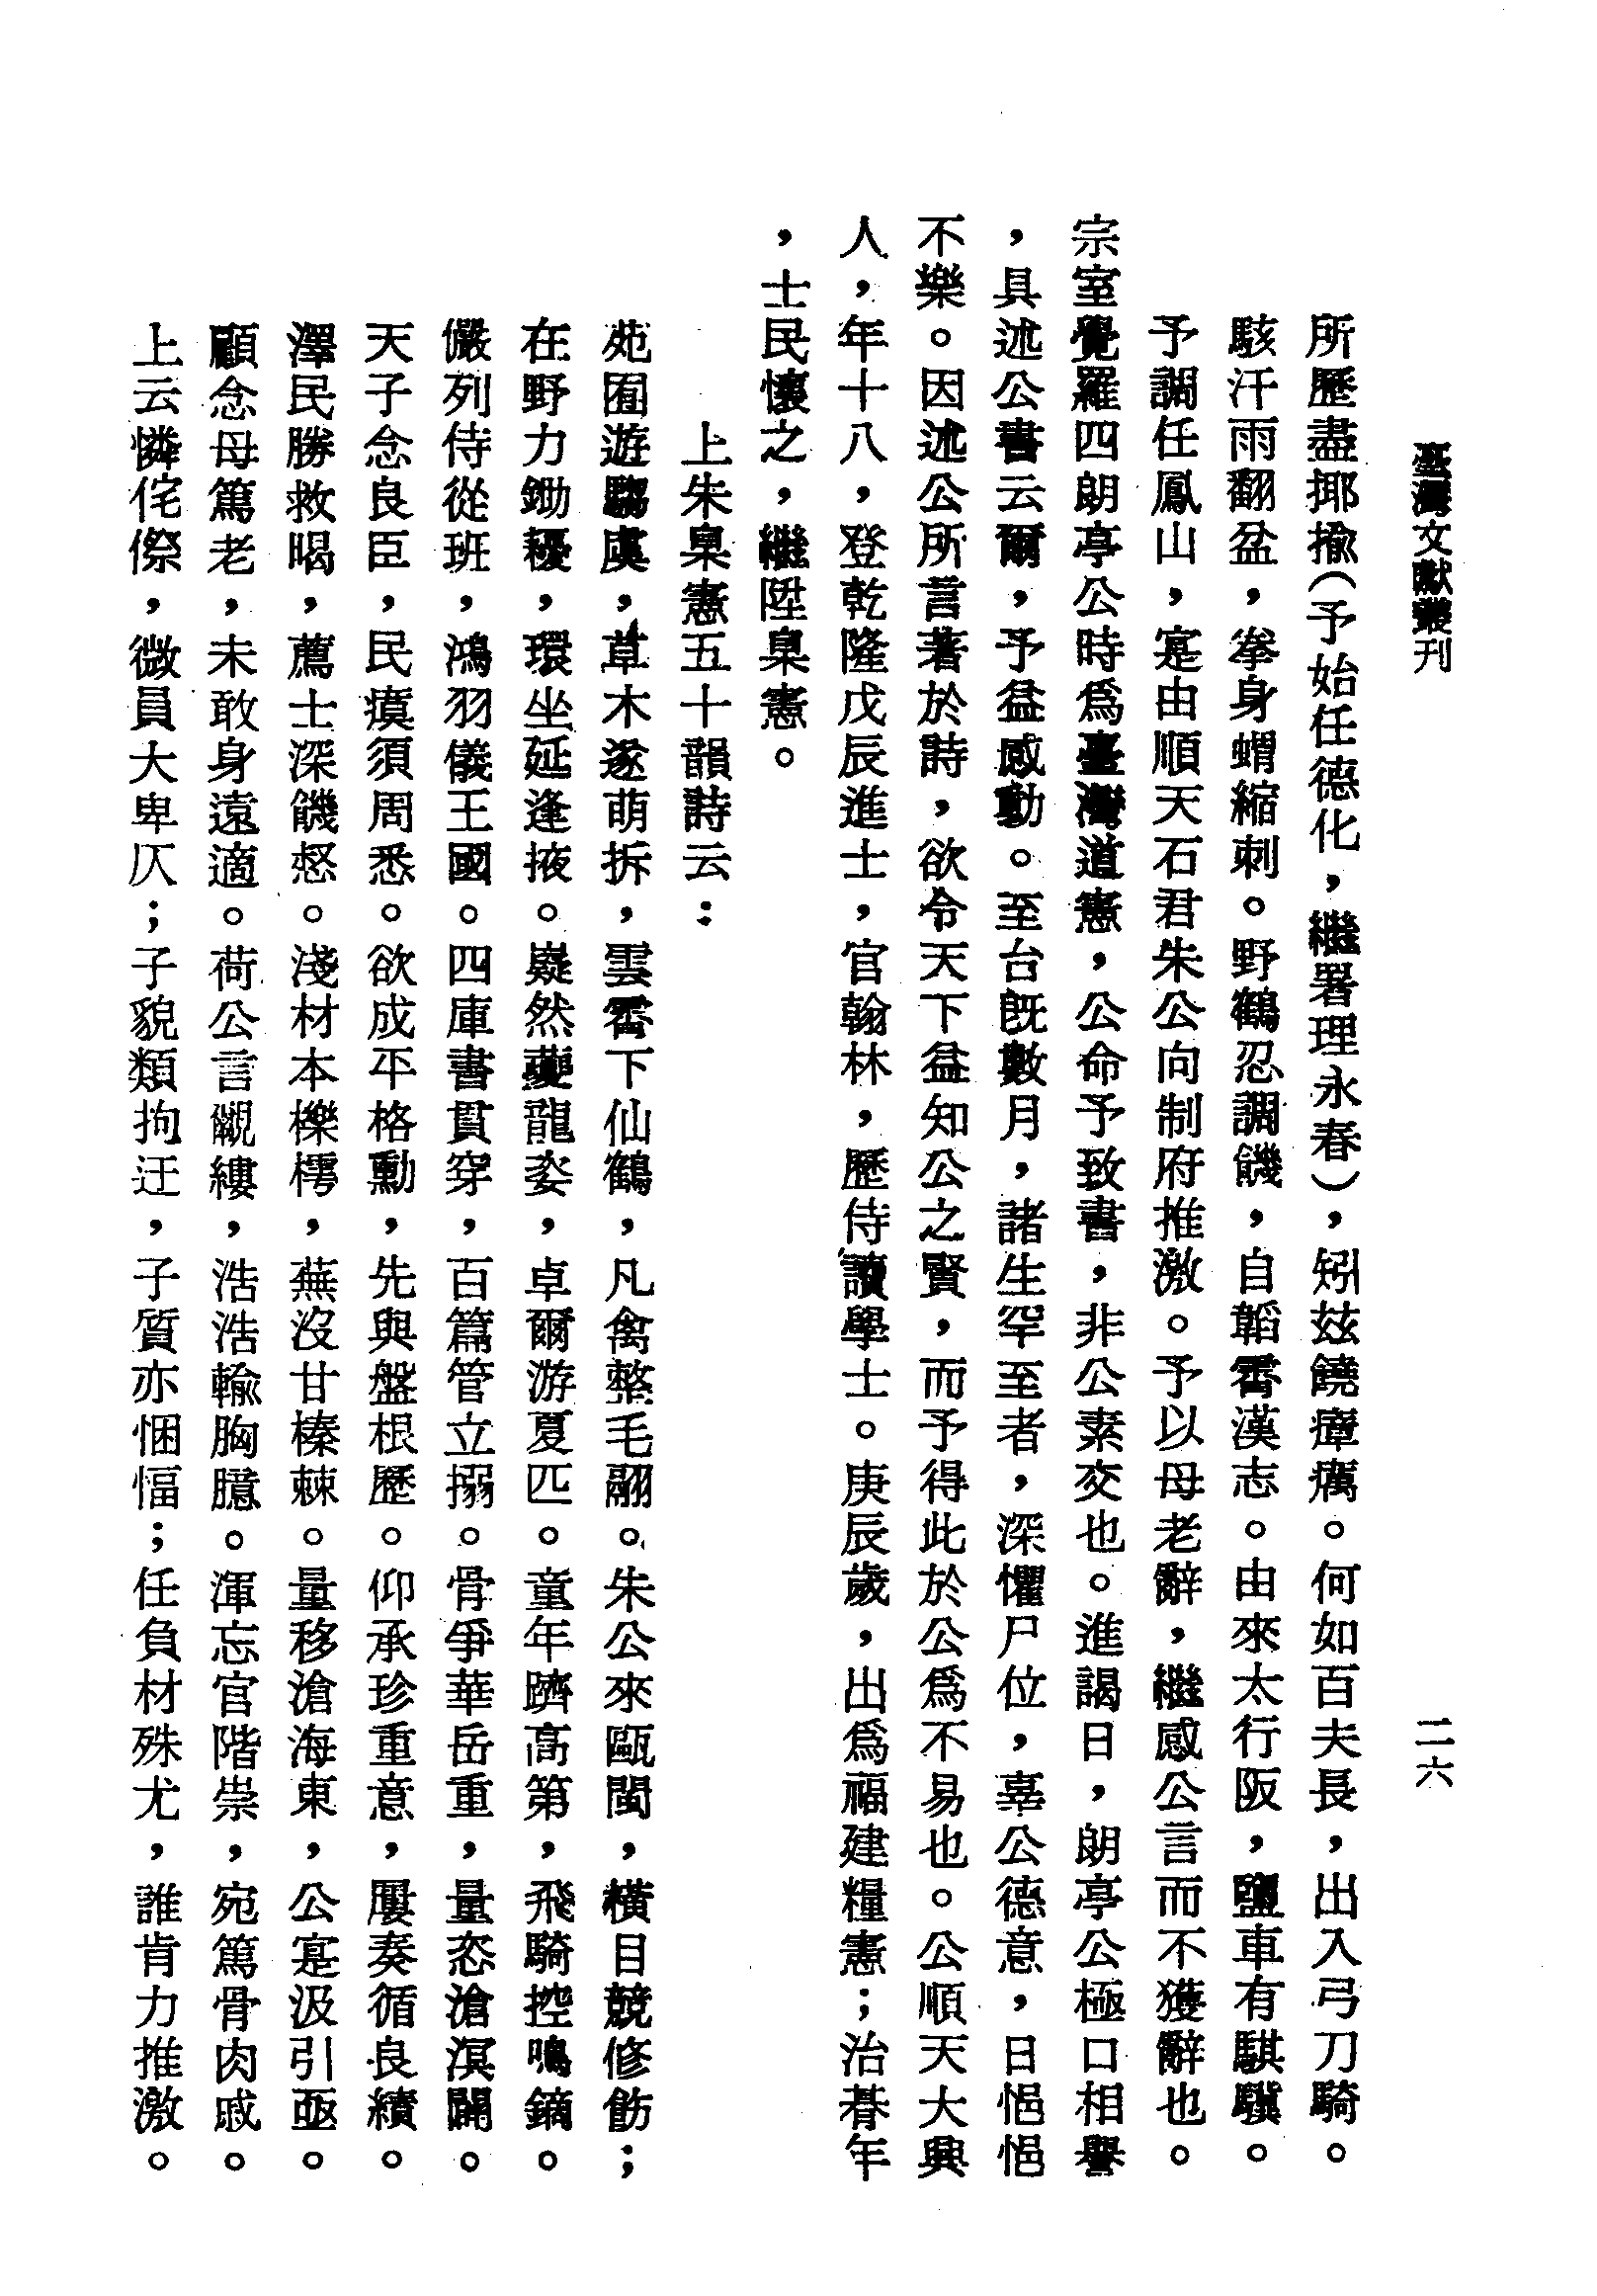 臺灣文獻叢刊
二六
所歷盡揶揄(予始任德化，繼署理永春)，矧玆饒瘴癘。何如百夫長，出入弓刀騎。
駭汗雨翻盆，拳身蝟縮刺。野鶴忍調饑，自韜霄漢志。由來太行阪，鹽車有騏驥。
予調任鳳山，寔由順天石君朱公向制府推激。予以母老辭，繼感公言而不獲辭也。
宗室覺羅四朗亭公時爲臺灣道憲，公命予致書，非公素交也。進謁日，朗亭公極口相譽
，具述公書云爾，予益感動。至台旣數月，諸生罕至者，深懼尸位，辜公德意，日悒悒
不樂。因述公所言著於詩，欲令天下益知公之賢，而予得此於公爲不易也。公順天大興
人，年十八，登乾隆戊辰進士，官翰林，歷侍讀學士。庚辰歲，出爲福建糧憲；治朞年
，士民懷之，繼陞臬憲。
上朱臬憲五十韻詩云：
苑囿遊騶虞，草木遂萌拆，雲霄下仙鶴，凡禽整毛翮。朱公來甌閩，橫目競修飭；
在野力鋤耰，環坐延逢掖。嶷然夔龍姿，卓爾游夏匹。童年躋高第，飛騎控鳴鏑。
儼列侍從班，鴻羽儀王國。四庫書貫穿，百篇管立搦。骨爭華岳重，量恣滄溟闢。
天子念良臣，民瘼須周悉。欲成平格勳，先與盤根歷。仰承珍重意，屢奏循良績。
澤民勝救暍，薦士深饑惄。淺材本櫟樗，蕪沒甘榛棘。量移滄海東，公寔汲引亟。
顧念母篤老，未敢身遠適。荷公言覼縷，浩浩輸胸臆。渾忘官階崇，宛篤骨肉戚。
上云憐侘傺，微員大卑仄；子貌類拘迂，子質亦悃愊；任負材殊尤，誰肯力推激。